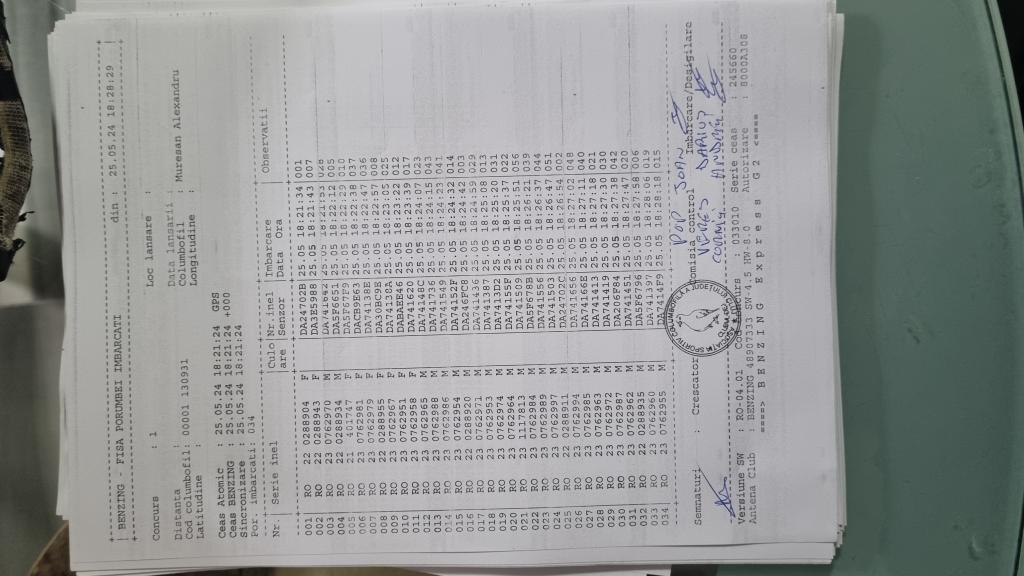 BENZING FISA PORUMBEI IMBARCATI din : 25.05.24 18:28:29
Concurs : 1 Loc lansare :
Distanta : Data lansarii :
Cod columbofil: 00001 130931 Columbofil : Muresan Alexandru
Latitudine : Longitudine :
Ceas Atomic : 25.05.24 18:21:24 GPS
Ceas BENZING : 25.05.24 18:21:24 +000
Sincronizare : 25.05.24 18:21:24
Por. imbarcati: 034
Nr. Serie inel Culo Nr.inel Imbarcare Observatii
are Senzor Data Ora
001 RO 22 0288904 F DA24702B 25.05 18:21:34 001
002 RO 22 0288943 F DA1E5988 25.05 18:21:43 007
003 RO 23 0762970 M 25.05
004 RO 22 0288934 M DA5F6651 25.05 18:22:12 005
005 RO 21 F DA5F67F9 25.05 18:22:29 010
006 RO 23 0762981 F DACB9E63 25.05 18:22:38 037
007 RO 23 0762979 F DA74138E 25.05 18:22:47 036
008 RO 22 0288955 F DA30BC9E 25.05 18:22:57 008
009 RO 23 0762957 F DA74136A 25.05 18:23:05 025
010 RO 23 0762951 F DABAEE46 25.05 18:23:22 012
011 RO 23 0762958 F DA741620 25.05 18:23:39 017
012 RO 23 0762965 M DA74148C 25.05 18:24:07 023
013 RO 23 0762988 M DA741736 25.05 18:24:15 043
014 RO 23 0762986 M DA741549 25.05 18:24:23 041
015 RO 23 0762954 M DA74152F 25.05 18:24:32 014
016 RO 22 0288920 M DA246FC8 25.05 18:24:42 003
017 RO 23 0762971 M 25.05 18:24:59 029
018 RO 23 0762953 M DA7413B7 25.05 18:25:08 013
019 RO 23 0762974 M DA7413D2 25.05 18:25:20 031
020 RO 23 0762964 M DA74155F 25.05 18:25:37 022
021 RO 23 1117813 M DA741509 25.05 18:25:51 056
022 RO 23 0762984 M DA5F678B 25.05 18:26:21 039
023 RO 23 0762989 M DA741556 25.05 18:26:37 044
024 RO 23 0762997 M DA741503 25.05 18:26:47 051
025 RO 22 0288911 M DA24702C 25.05 18:26:54 002
026 RO 23 0762994 M DA741656 25.05 18:27:02 048
027 RO 23 0762985 M DA74166E 25.05 18:27:11 040
028 RO 23 0762963 M DA741413 25.05 18:27:18 021
029 RO 23 0762972 M DA741419 25.05 18:27:30 030
030 RO 23 0762987 M DA206F84 25.05 18:27:38 042
031 RO 23 0762962 M DA741451 25.05 18:27:47 020
032 RO 22 0288935 M DA5F6796 25.05 18:27:58 006
033 RO 23 0762960 M DA741397 25.05 18:28:06 019
034 RO 23 0762955 M DA7414F9 25.05 18:28:18 015
POP IOAN
Semnaturi : Crescator Comisia control Imbarcare/Desigilare
VERES DARIUS
Versiune SW : RO-04.01 : 033010 Serie ceas : 245660
Antena Club : BENZING 48907333 SW-4.5 HW-8.0 Autorizare : 8000A308
====> BENZING Express G2 <====